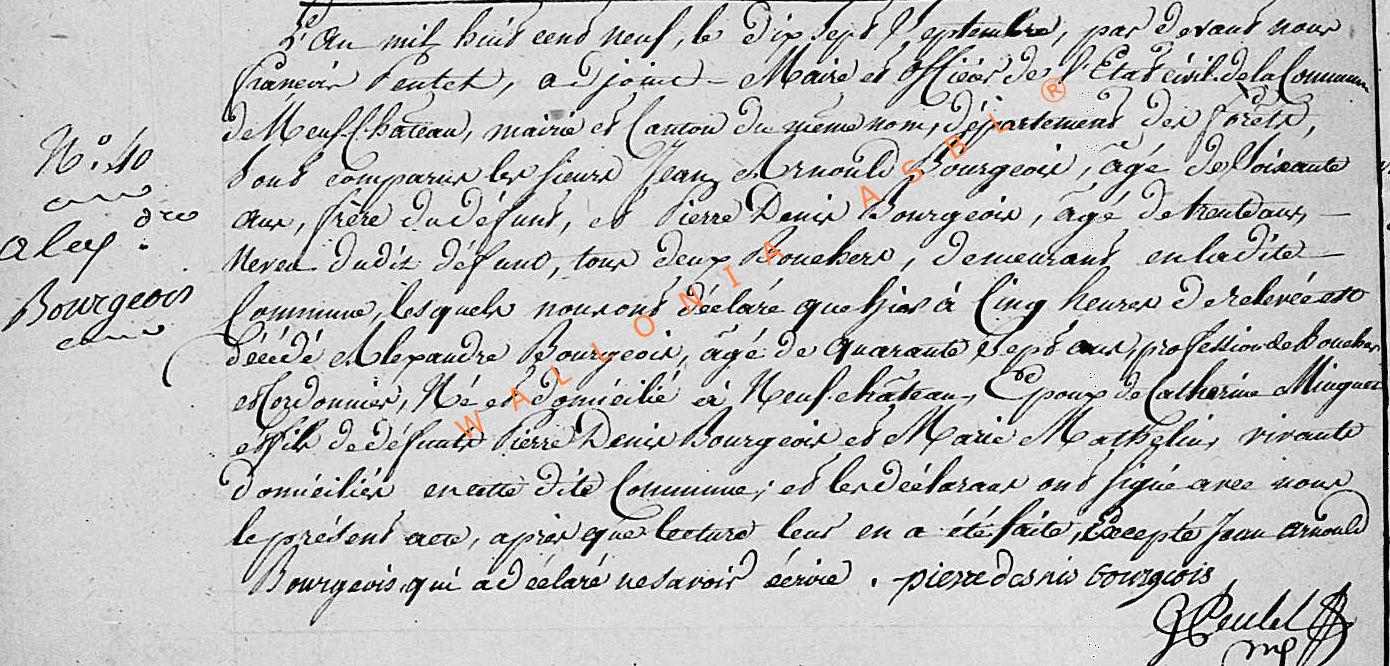 L'an mil huit cent neuf, le dix sept Septembre, par devant nous
François Peutet, adjoint-Maire et officier de l'Etat civil de la Commune
de Neufchateau, mairie et Canton du même nom, département des Forêts,
N.º 40
Sont comparus les sieurs Jean Arnould Bourgeois, âgé de soixante
ans, frère du défunt, et Pierre Denis Bourgeois, âgé de trente ans,
Alex.dre
Neveu dudit défunt, tous deux Bouchers, demeurant en ladite
Bourgeois
Commune, lesquels nous ont déclaré que hier à Cinq heures de relevée est
décédé Alexandre Bourgeois, âgé de quarante sept ans, profession de Boucher
et Cordonnier, Né et domicilié à Neufchâteau, Epoux de Catherine Minguet
et fils de défunts Pierre Denis Bourgeois et Marie Mathelin, vivants
domiciliés en cette dite Commune; et les déclarans ont signé avec nous
le présent acte, après que lecture leur en a été faite, Excepté Jean Arnould
Bourgeois qui a déclaré ne savoir écrire. pierre desnis bourgeois
Peutet
WALLONIA ASBL ®